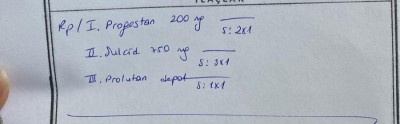 Rp/ I. Progestan 200 mg
S: 2x1
II. Sulcid 750 mg
S: 3x1
III. Prolutan depot
S: 1x1